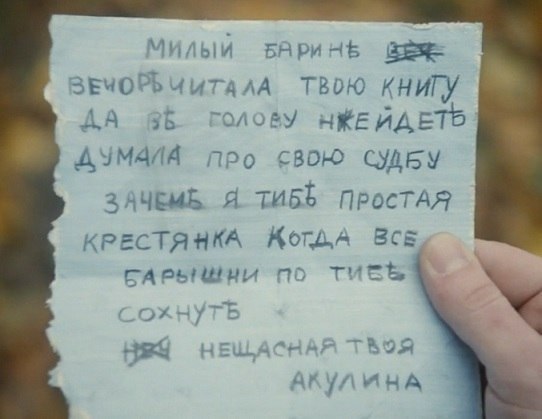 МИЛЫЙ БАРИНѢ
ВЕЧОРѢ ЧИТАЛА ТВОЮ КНИГУ
ДА ВѢ ГОЛОВУ НЖЕЙДЕТѢ
ДУМАЛА ПРО СВОЮ СУДБУ
ЗАЧЕМѢ Я ТИБѢ ПРОСТАЯ
КРЕСТЯНКА КОГДА ВСЕ
БАРЫШНИ ПО ТИБѢ
СОХНУТѢ
НЕЩАСНАЯ ТВОЯ
АКУЛИНА